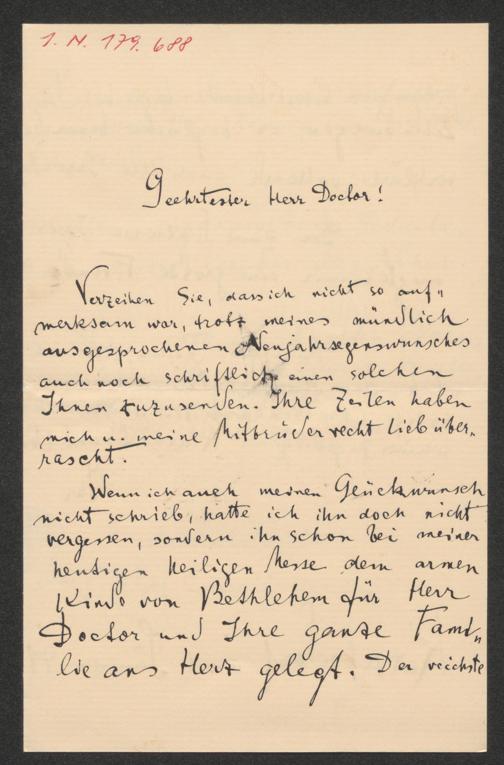 I. N. 179.688
Geehrtester Herr Doctor!
Verzeihen Sie, dass ich nicht so auf„
merksam war, trotz meines mündlich
ausgesprochenen Neujahrsegenswunsches
auch noch schriftlich einen solchen
Ihnen zuzusenden. Ihre Zeilen haben
mich u. meine Mitbrüder recht lieb über„
rascht.
Wenn ich auch meinen Glückwunsch
nicht schrieb, hatte ich ihn doch nicht
vergessen, sondern ihn schon bei meiner
heutigen heiligen Messe dem armen
Kinde von Bethlehem für Herr
Doctor und Ihre ganze Fami„
lie ans Herz gelegt. Der reichste